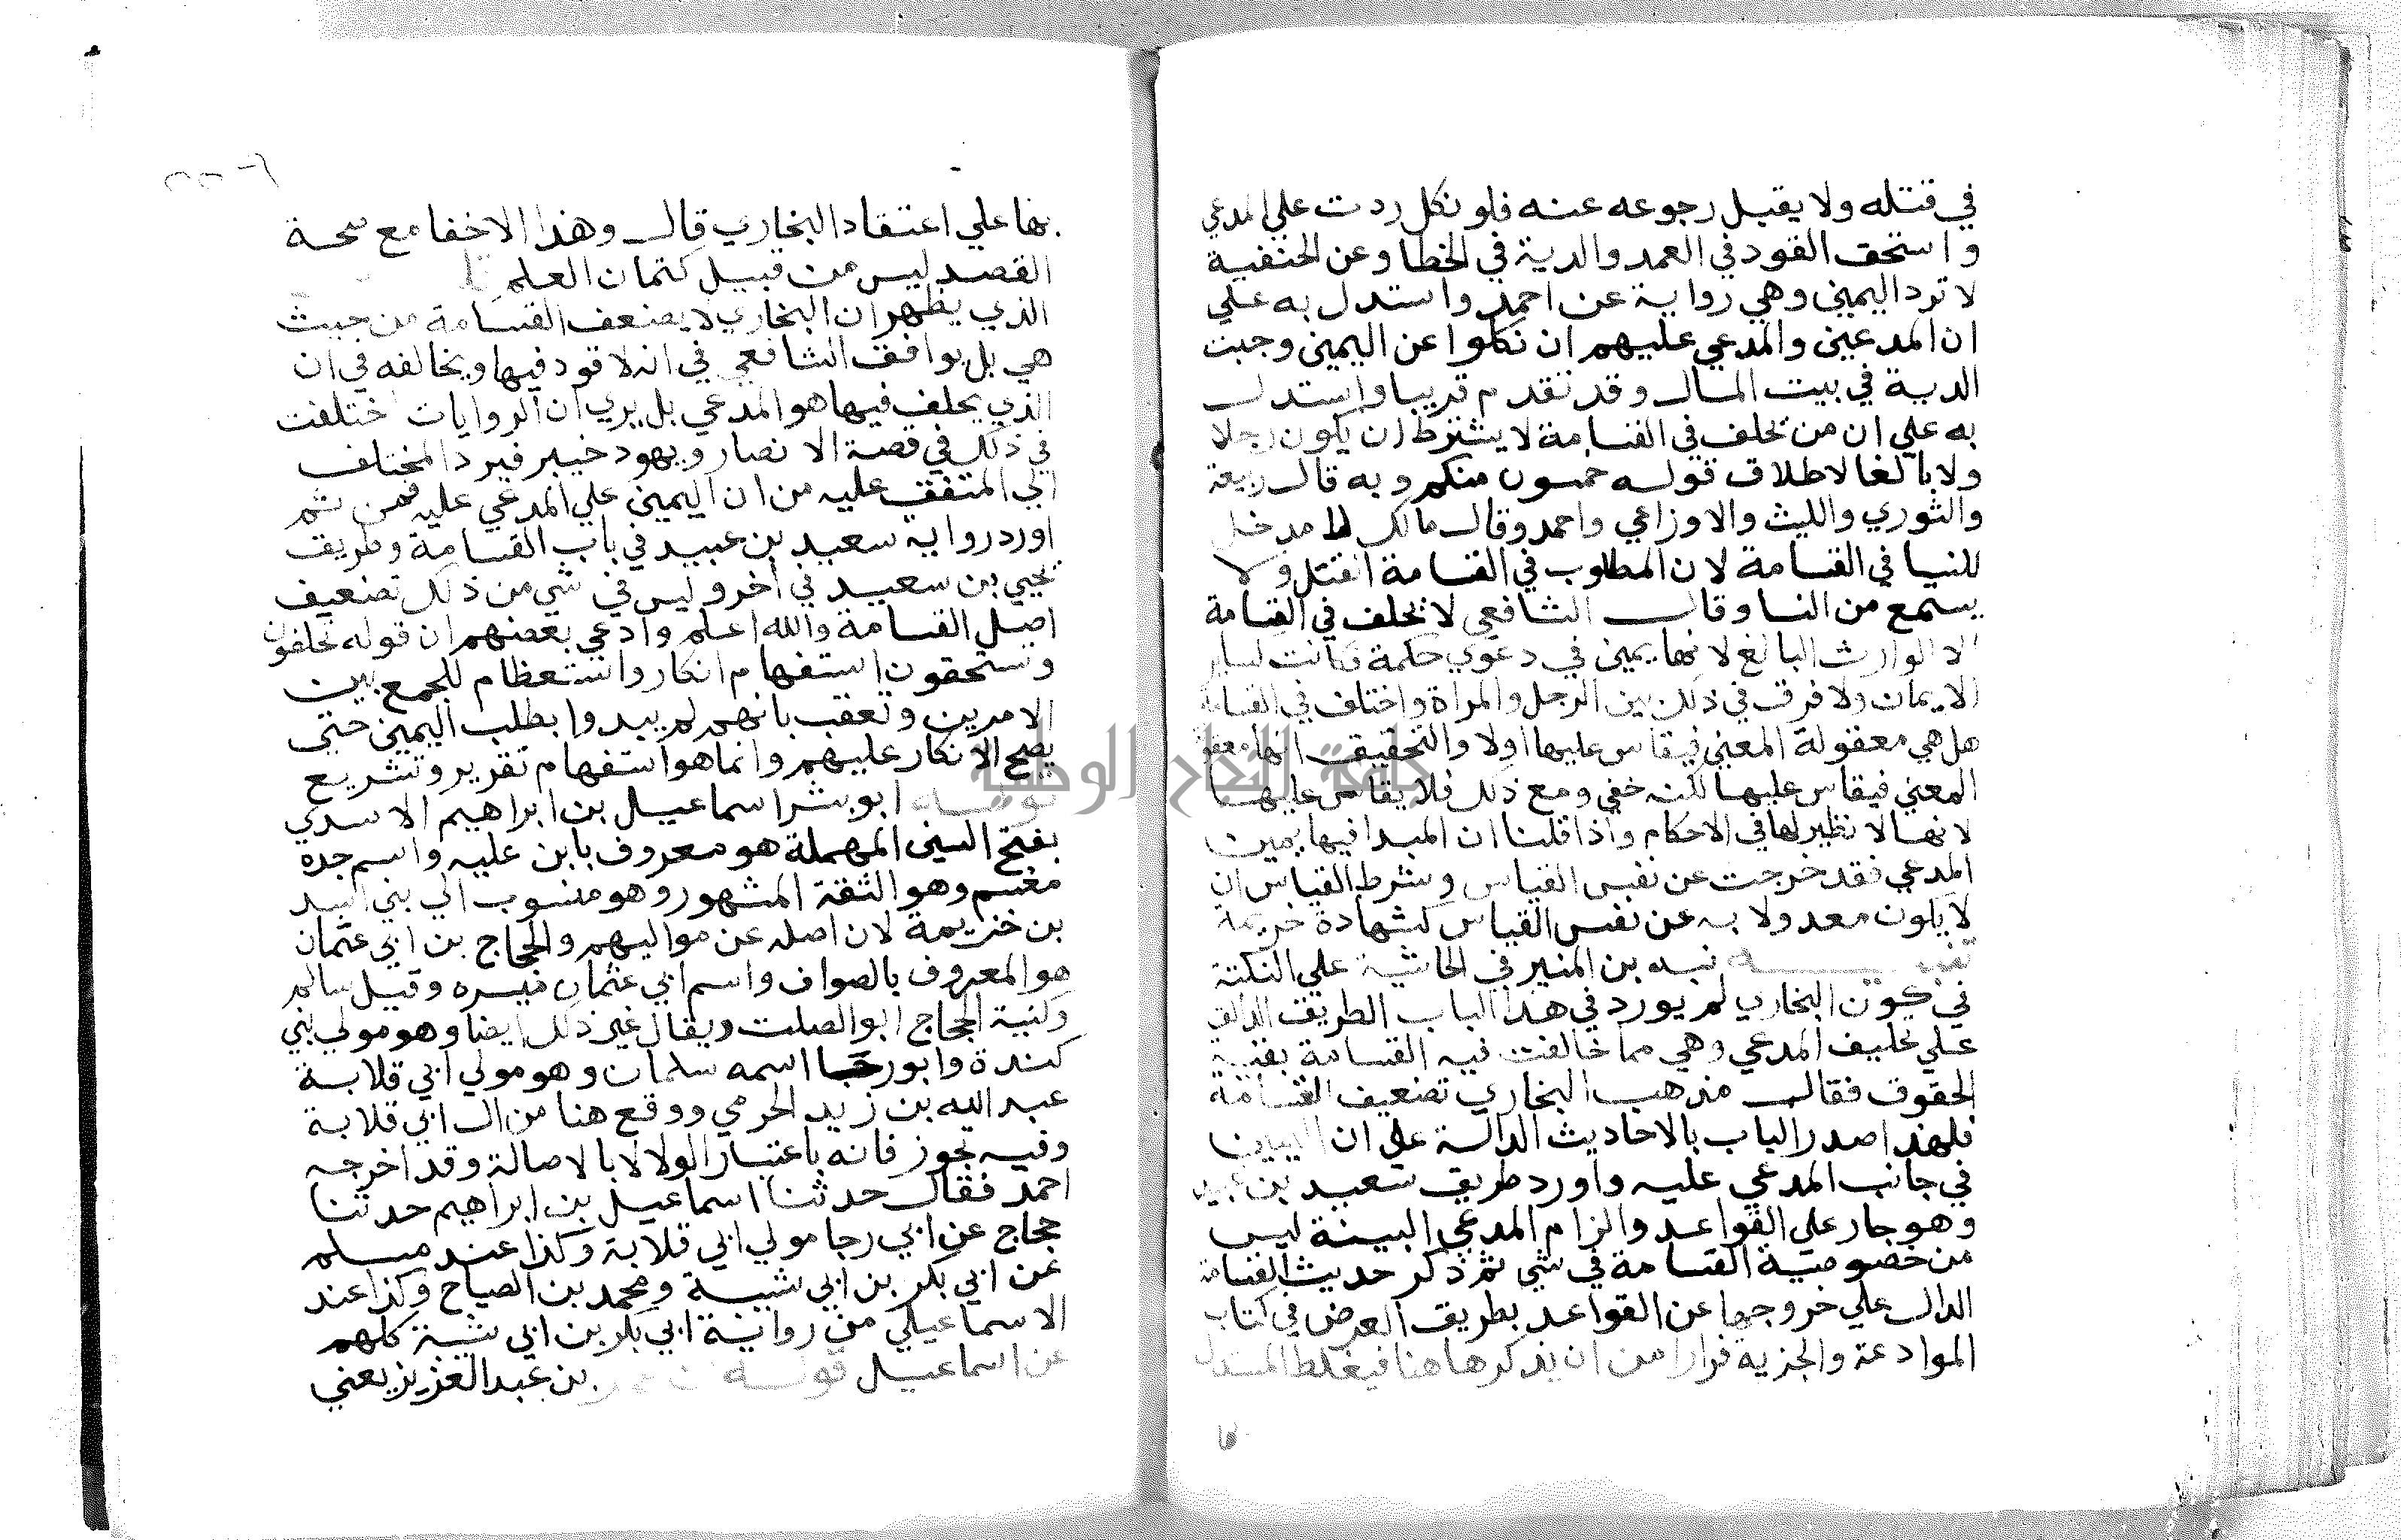 في قتله ولا يقبل رجوعه عنه فلو نكل ردت علي المدعي
واستحق القود في العمد والدية في الخطا وعن الحنفية
لا ترد اليمين وهي رواية عن احمد واستدل به علي
ان المدعين والمدعي عليهم ان نكلوا عن اليمين وجبت
الدية في بيت المال وقد تقدم قريبا واستدل
به علي ان من يحلف في القسامة لا يشترط ان يكون رجلا
ولا بالغا لاطلاق قوله خمسون منكم وبه قال ربيعة
والثوري والليث والاوزاعي واحمد وقال مالك لا مدخل
للنسا في القسامة لان المطلوب في القسامة القتل ولا
يستمع من النسا وقال الشافعي لا يحلف في القسامة
الا الوارث البالغ لانها يمين في دعوي حكمة فكانت لساير
الايمان ولا فرق في ذلك بين الرجل والمراة واختلف في القسامة
هل هي معقولة المعني فيقاس عليها اولا والتحقيق انها معقولة
المعني فيقاس عليها لكنه خفي ومع ذلك فلا يقاس عليها
لانها لا نظير لها في الاحكام واذا قلنا ان المبدا فيها يمين
المدعي فقد خرجت عن نفس القياس وشرط القياس ان
لا يكون معدولا به عن نفس القياس كشهادة خزيمة
تنبيه نبه بن المنير في الحاشية علي النكتة
في كون البخاري لم يورد في هذا الباب الطريق الدالة
علي تحليف المدعي وهي مما خالفت فيه القسامة بقية
الحقوق فقال مذهب البخاري تضعيف القسامة
فلهذا صدر الباب بالاحاديث الدالة علي ان اليمين
في جانب المدعي عليه واورد طريق سعيد بن عبيد
وهو جار علي القواعد والزام المدعي البينة ليس
من خصوصية القسامة في شي ثم ذكر حديث القسامة
الدال علي خروجها عن القواعد بطريق العرض في كتاب
الموادعة والجزية فرارا من ان يذكرها هنا فيغلط المستدل
بها علي اعتقاد البخاري قال وهذا الاخفا مع صحة
القصد ليس من قبيل كتمان العلم
الذي يظهر ان البخاري لا يضعف القسامة من حيث
هي بل يوافق الشافعي في انه لا قود فيها ويخالفه في ان
الذي يحلف فيها هو المدعي بل يري ان الروايات اختلفت
في ذلك في قصة الانصار ويهود خيبر فيرد المختلف
الي المتفق عليه من ان اليمين علي المدعي عليه فمن ثم
اورد رواية سعيد بن عبيد في باب القسامة وطريق
يحيي بن سعيد في اخر وليس في شي من ذلك تضعيف
اصل القسامة والله اعلم وادعي بعضهم ان قوله تحلفون
وتستحقون استفهام انكار واستعظام للجمع بين
الامرين وتعقب بانهم لم يبدوا بطلب اليمين حتي
يصح الانكار عليهم وانما هو استفهام تقرير وتشريع
قوله ابو بشر اسماعيل بن ابراهيم الاسدي
بفتح السين المهملة هو معروف بابن علية واسم جده
مقسم وهو الثقة المشهور وهو منسوب الي بني اسد
بن خزيمة لان اصله عن مواليهم والحجاج بن ابي عثمان
هو المعروف بالصواف واسم ابي عثمان ميسره وقيل سالم
وكنية الحجاج ابو الصلت ويقال غير ذلك ايضا وهو مولي بني
كندة وابو رجا اسمه سلمان وهو مولي ابي قلابة
عبد الله بن زيد الجرمي ووقع هنا من ال ابي قلابة
وفيه تجوز فانه باعتبار الولا لا بالاصالة وقد اخرجه
احمد فقال حدثنا اسماعيل بن ابراهيم حدثنا
حجاج عن ابي رجا مولي ابي قلابة وكذا عند مسلم
عن ابي بكر بن ابي شيبة ومحمد بن الصباح وكذا عند
الاسماعيلي من رواية ابي بكر بن ابي شيبة كلهم
عن اسماعيل قوله بن عبد العزيز يعني
جامعة النجاح الوطنية